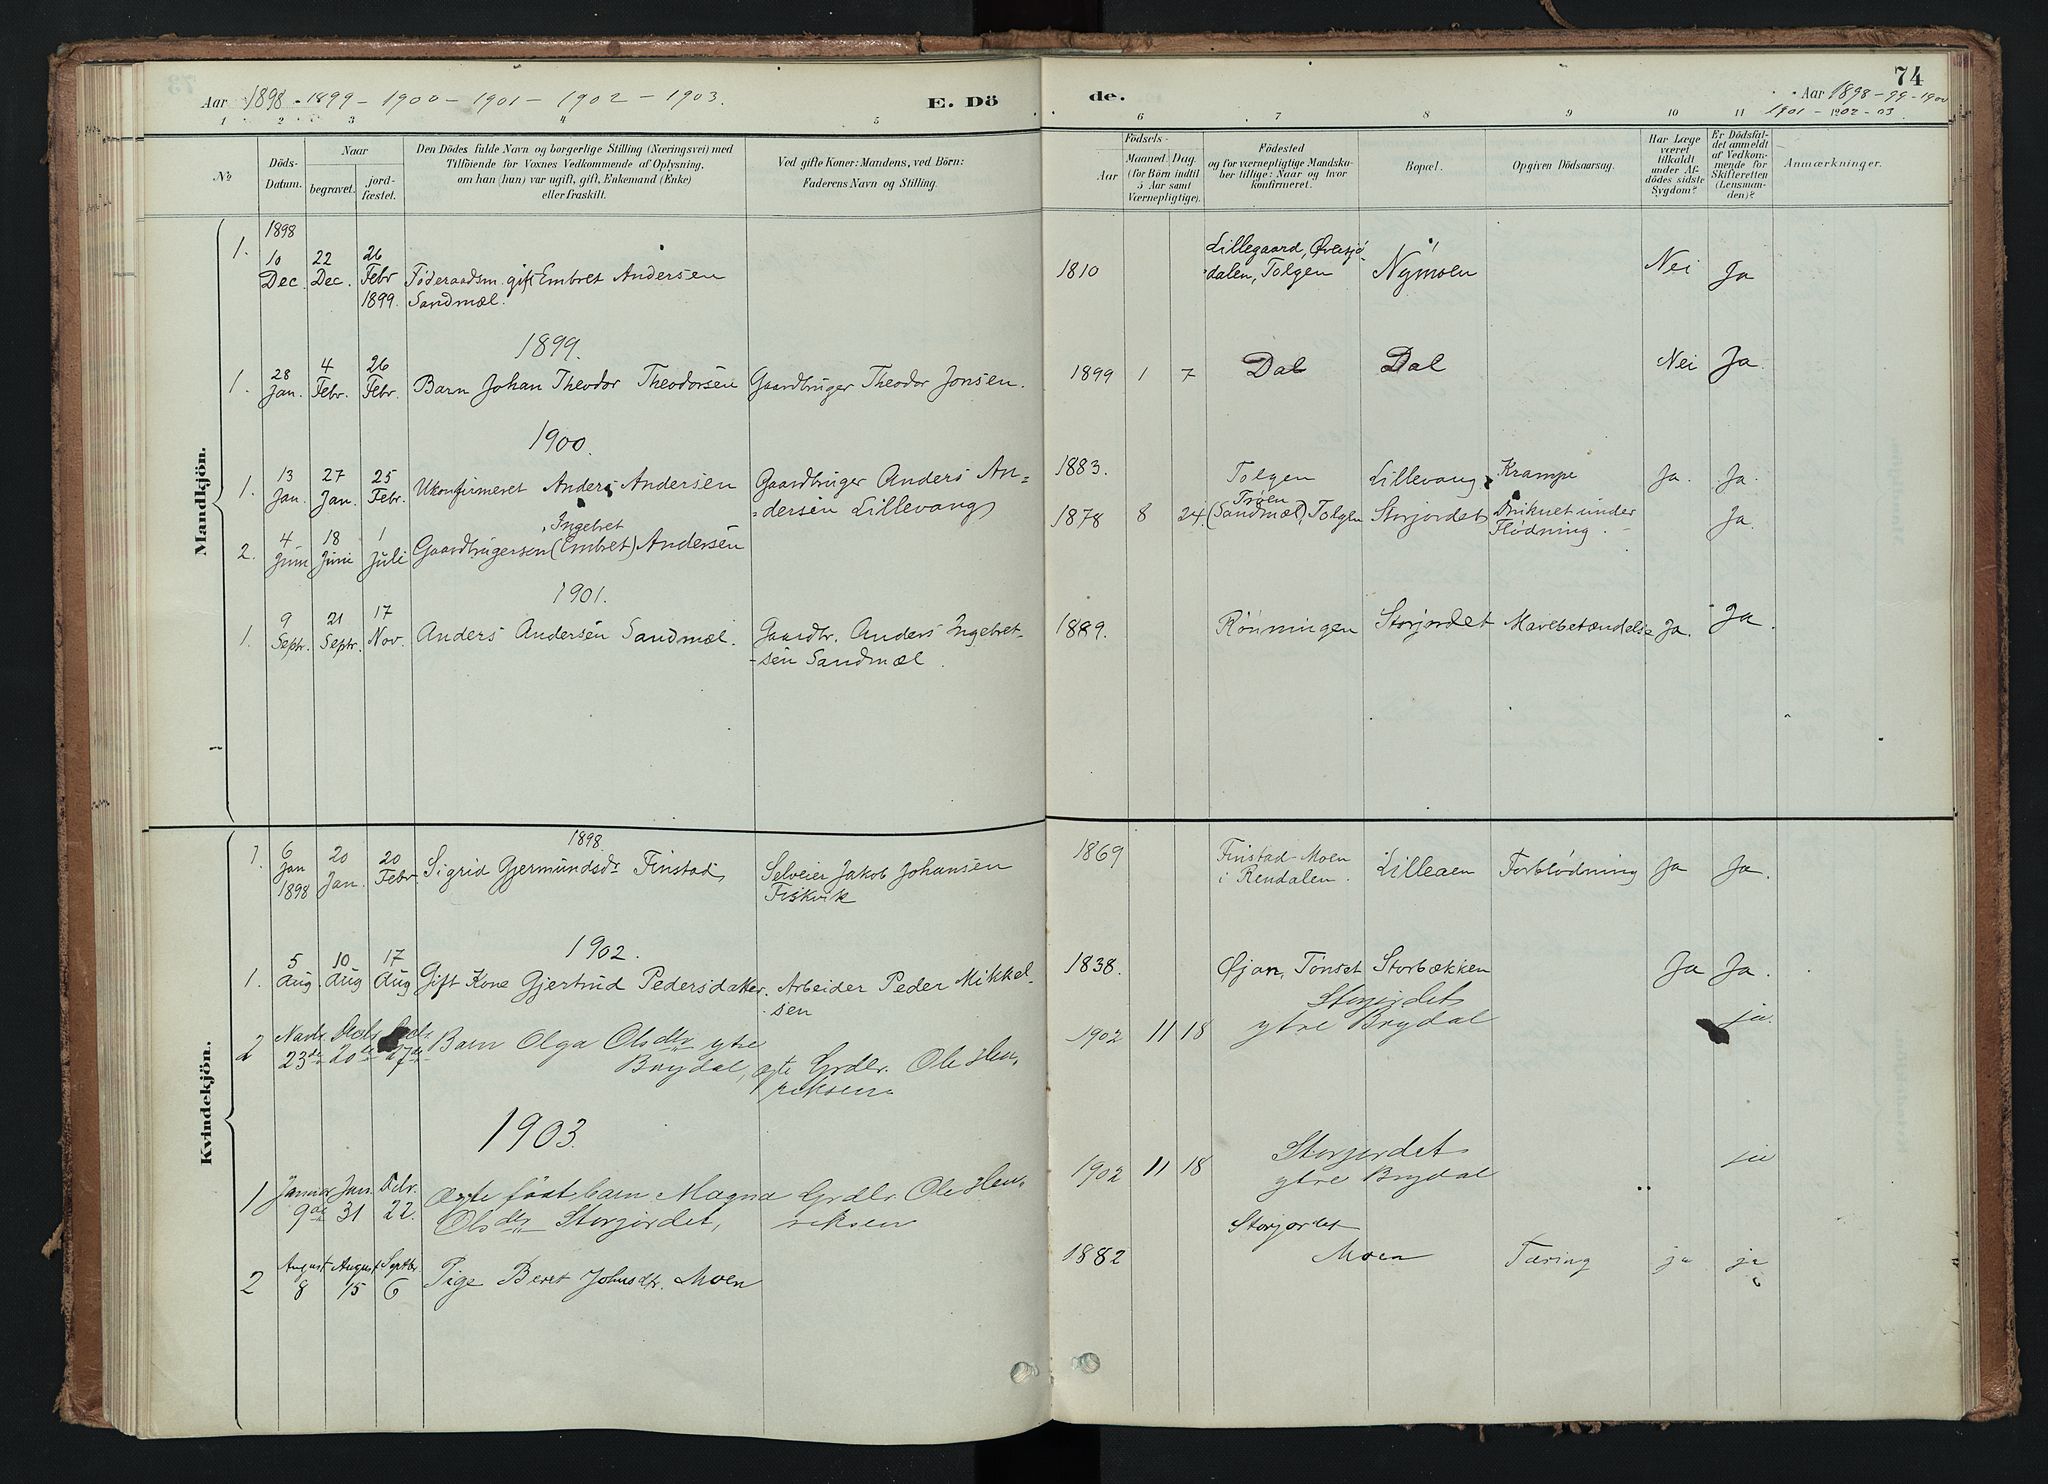 Aar 1898 - 1899 - 1900 - 1901 - 1902 - 1903.
E. Dö
de.
74
Aar 1898 - 99 - 1900
1901 - 1902 - 03.
1 2 3 4 5 6 7 8 9 10 11
No
Döds-
Datum.
Naar
begravet.
jord-
fæstet.
Den Dödes fulde Navn og borgerlige Stilling (Næringsvei) med
Tilföiende for Voxnes Vedkommende af Oplysning,
om han (hun) var ugift, gift, Enkemand (Enke)
eller fraskilt.
Ved gifte Koner: Mandens, ved Börn:
Faderens Navn og Stilling.
Födsels-
Aar
Maaned. Dag.
(for Börn indtil
5 Aar samt
Værnepligtige).
Födested
og for værnepligtige Mandska-
ber tillige: Naar og hvor
konfirmeret.
Bopæl.
Opgiven Dödsaarsag.
Har Læge
været
tilkaldt
under Af-
dödes sidste
Sygdom?
Er Dödsfal-
det anmeldt
af Vedkom-
mende for
Skifteretten
(Lensman-
den)?
Anmærkninger.
Mandkjön.
1898
1. 10 Dec. 22 Dec. 26 Febr 1899. Föderaadsm. gift Embret Andersen
Sandmæl.
1810 Lillegaard, Øversjö-
dalen, Tolgen Nymoen Nei Ja
1899.
1. 28 Jan. 4 Febr. 26 Febr. Barn Johan Theodor Theodorsen Gaardbruger Theodor Jonsen. 1899 1 7 Dal Dal Nei Ja.
1900.
1. 13 Jan. 27 Jan. 25 Febr. Ukonfirmeret Anders Andersen Gaardbruger Anders An-
dersen Lillevang
1883. Tolgen Lillevang Krampe Ja. Ja.
Ingebret
2. 4 Juni 18 Juni 1 Juli Gaardbrugersøn (Embret) Andersen
1878 8 24. Trøen
(Sandmæl), Tolgen Storjordet Druknet under
Flødning. Ja.
1901.
1. 9 Septr. 21 Septr. 17 Nov. Anders Andersen Sandmæl. Gaardbr. Anders Ingebret-
sen Sandmæl.
1889. Rönningen Storjordet Mavebetændelse Ja. Ja.
Kvindekjön.
1898
1. 6 Jan 1898 20 Jan. 20 Febr. Sigrid Gjermundsdr Finstad Selveier Jakob Johansen
Fiskvik
1869 Finstad-Moen
i Rendalen. Lilleaen Forblødning Ja Ja.
1902.
1. 5 Aug. 10 Aug 17 Aug Gift Kone Gjertrud Pedersdatter. Arbeider Peder Mikkel-
sen
1838. Øjan, Tönset Storbækken Ja Ja.
2 23de 20de 27de Barn Olga Olsdtr ytre
Brydal, ægte Grdbr. Ole Hen-
riksen
1902 11 18 Storjordet
ytre Brydal ja.
1903.
1 Januar 9de Jan. 31 Febr. 22. Ægte født barn Magna
Olsdtr Storjordet, Grdbr. Ole Hen-
riksen
1902 11 18 Storjordet
ytre Brydal ja
Storjordet
2 August 8 August 15 Septbr. 6 Pige Beret Johnsdtr. Moen
1882 Moen Tæring ja ja